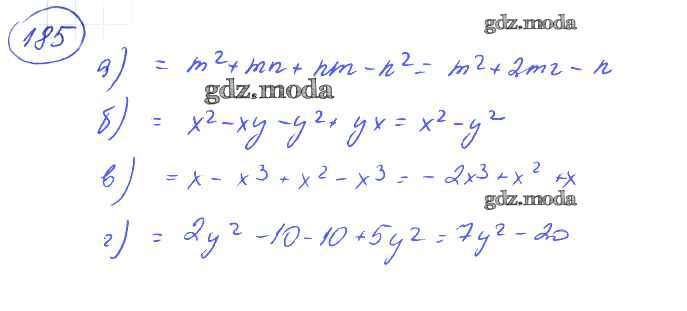 185
gdz.moda
а) = m² + mn + nm - n² = m² + 2mn - n
gdz.moda
б) = x² - xy - y² + yx = x² - y²
в) = x - x³ + x² - x³ = - 2x³ + x² + x
gdz.moda
г) = 2y² - 10 - 10 + 5y² = 7y² - 20